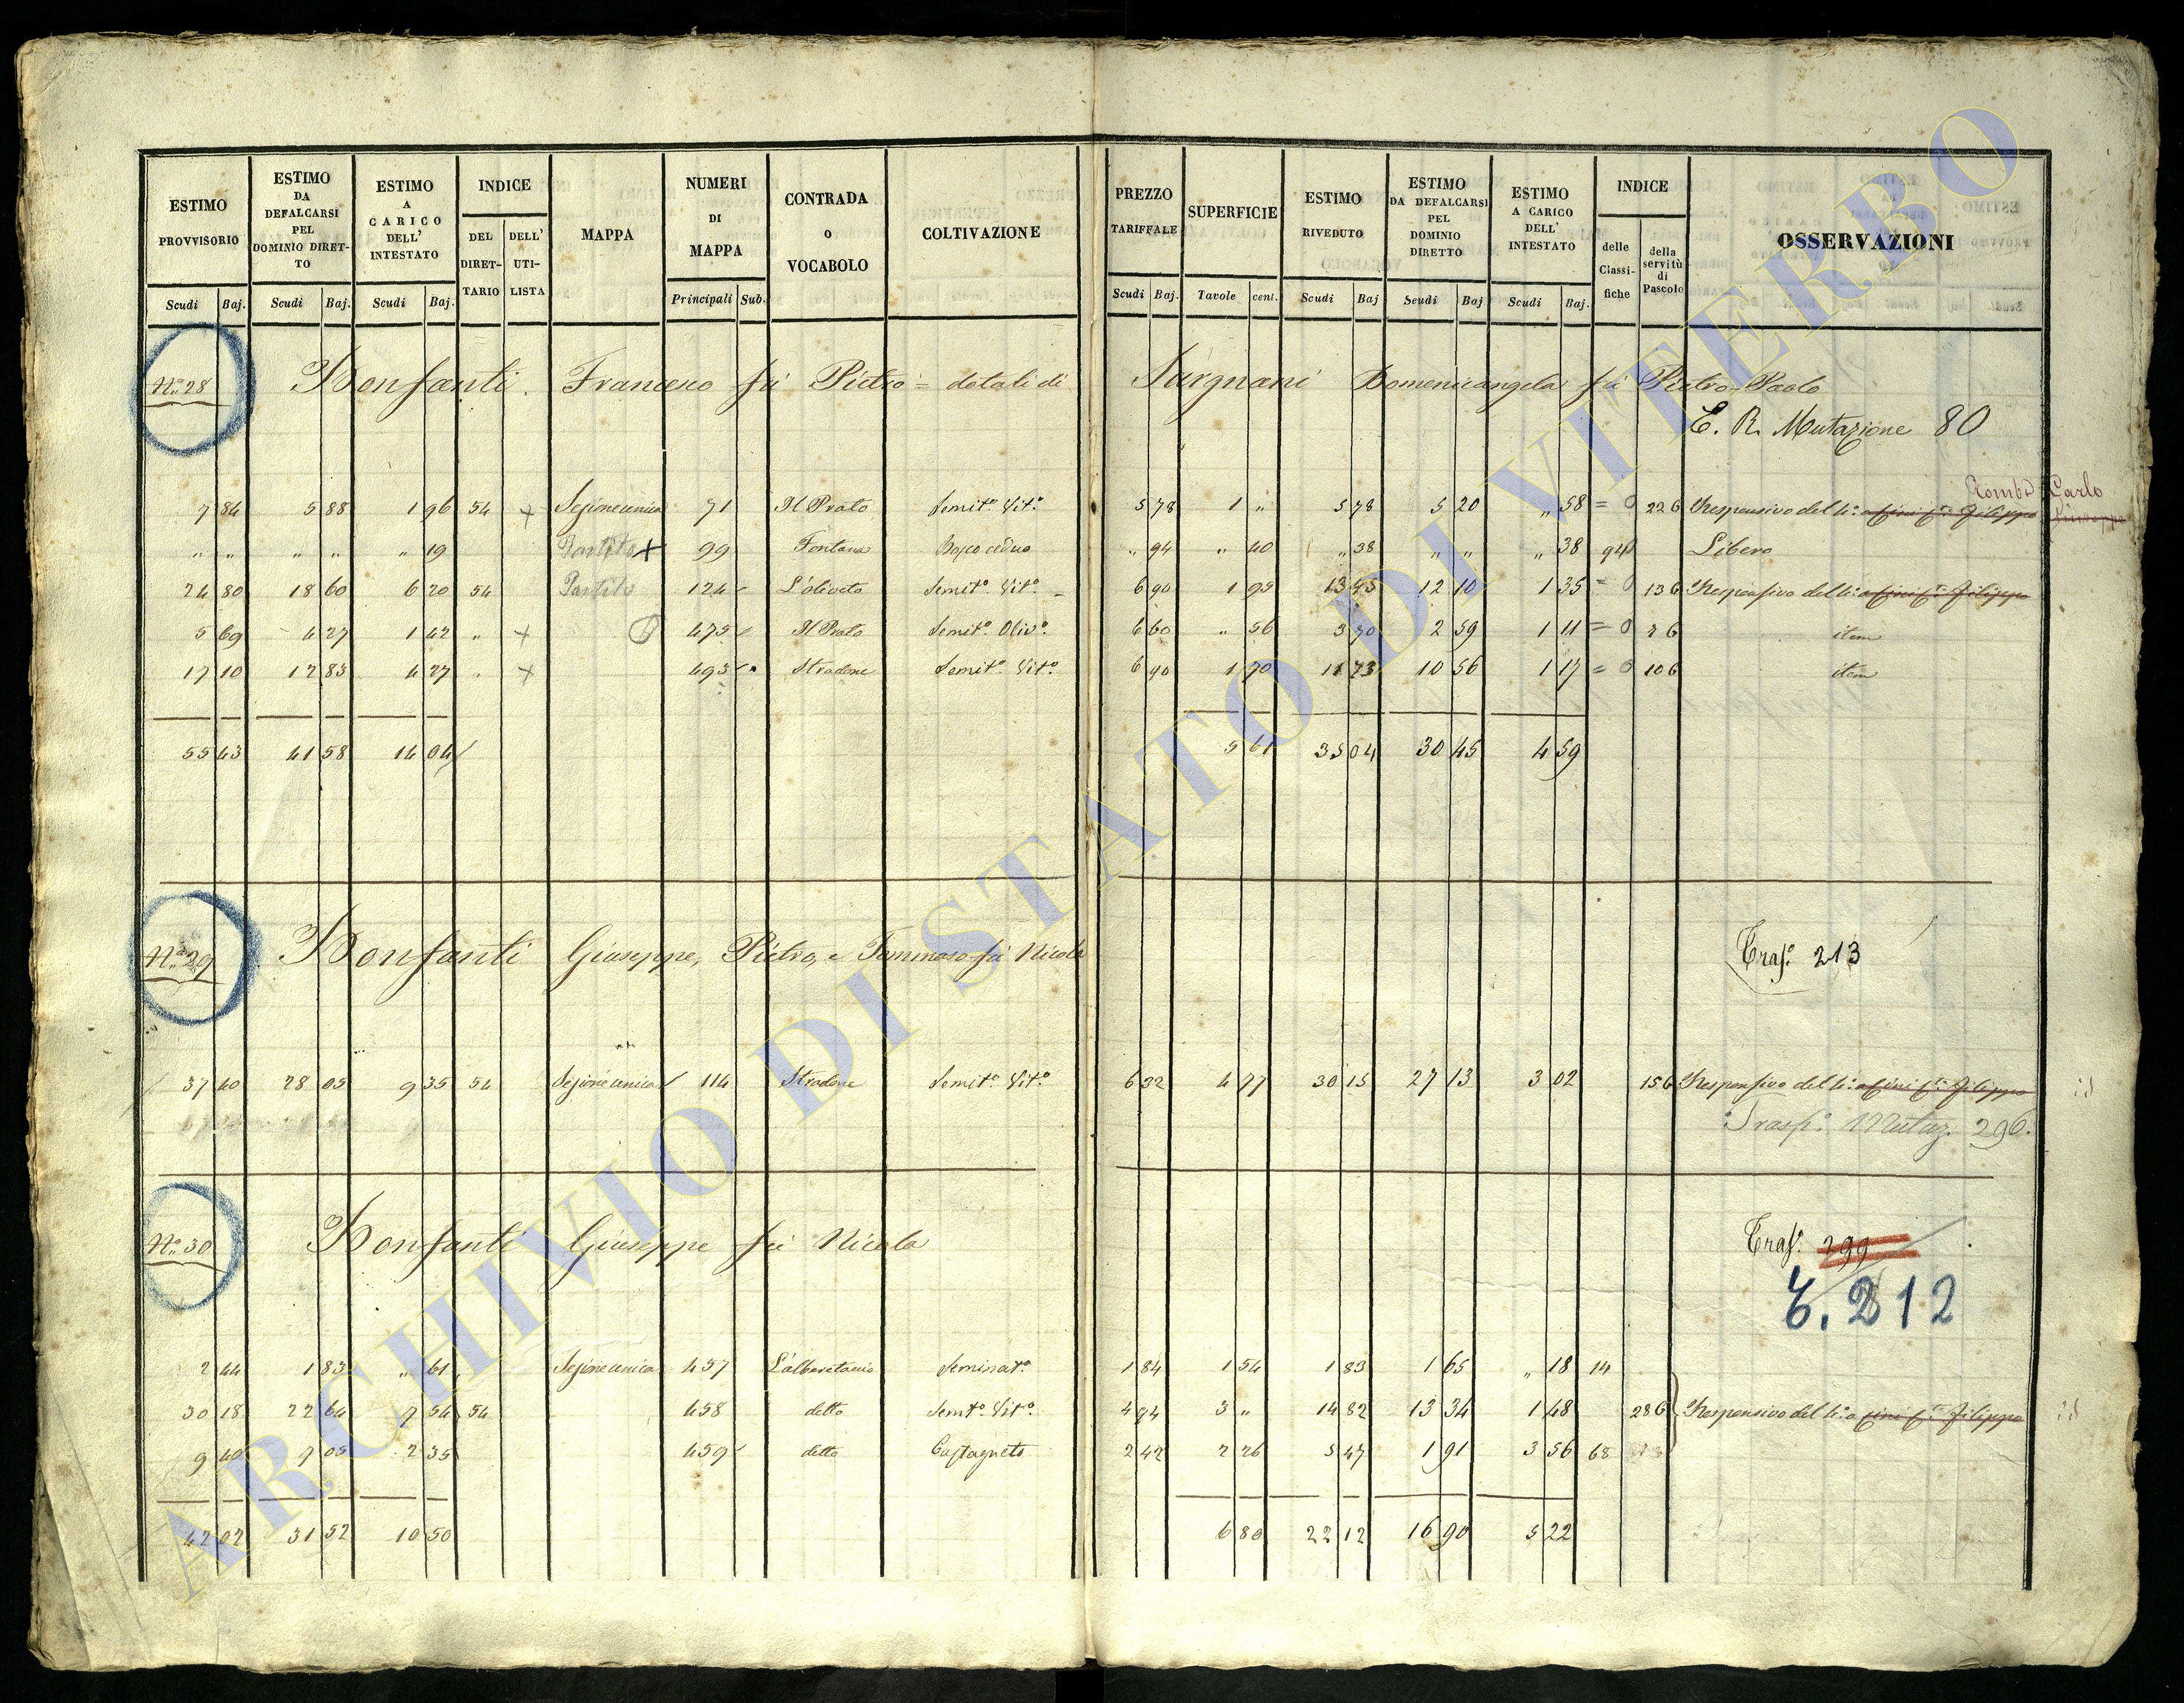 ESTIMO PROVVISORIO | ESTIMO DA DEFALCARSI PEL DOMINIO DIRETTO | ESTIMO A CARICO DELL' INTESTATO | INDICE | MAPPA | NUMERI DI MAPPA | CONTRADA O VOCABOLO | COLTIVAZIONE | PREZZO TARIFFALE | SUPERFICIE | ESTIMO RIVEDUTO | ESTIMO DA DEFALCARSI PEL DOMINIO DIRETTO | ESTIMO A CARICO DELL' INTESTATO | INDICE | OSSERVAZIONI
DEL DIRETTARIO | DELL' UTILISTA | delle Classifiche | della servitù di Pascolo
Scudi | Baj. | Scudi | Baj. | Scudi | Baj. | Principali | Sub. | Scudi | Baj. | Tavole | cent. | Scudi | Baj | Scudi | Baj | Scudi | Baj.
N.° 28 Bonfanti Francesco fu Pietro = dotali di Domenicangela fu Pietro-Paolo
E. R. Mutazione 80
Carlo
7 84 | 5 88 | 1 96 | 54 | + | Sezione unica | 71 | Il Prato | Semit.° Vit.° | 5 78 | 1 " | 5 78 | 5 20 | " 58 | = 0 | 226 | Responsivo del 4.° a Filippo
" " | " " | " 19 | Partito + | 99 | Fontana | Bosco ceduo | " 94 | " 40 | " 38 | " " | " 38 | 94 | Libero
24 80 | 18 60 | 6 20 | 54 | Partito | 124 | L'oliveto | Semit.° Vit.° | 6 90 | 1 95 | 13 45 | 12 10 | 1 35 | = 0 | 136 | Responsivo del 4.° a Filippo
5 69 | 4 27 | 1 42 | " | + | 475 | Il Prato | Semit.° Oliv.° | 6 60 | " 56 | 3 70 | 2 59 | 1 11 | = 0 | 36 | item
17 10 | 12 83 | 4 27 | " | + | 493 | Stradone | Semit.° Vit.° | 6 90 | 1 70 | 11 73 | 10 56 | 1 17 | = 0 | 106 | item
55 43 | 41 58 | 14 04 | 5 61 | 35 04 | 30 45 | 4 59
N.° 29 Bonfanti Giuseppe, Pietro, e Tommaso fu Nicola
Tras.° 213
37 40 | 28 05 | 9 35 | 54 | Sezione unica | 114 | Stradone | Semit.° Vit.° | 6 32 | 4 77 | 30 15 | 27 13 | 3 02 | 156 | Responsivo del 4.° a Filippo | id
Trasp.° Mutaz. 296.
N.° 30 Bonfanti Giuseppe fu Nicola
Tras.° 299
T. 212
2 44 | 1 83 | " 61 | Sezione unica | 457 | Seminat.° | 1 84 | 1 54 | 1 83 | 1 65 | " 18 | 14
30 18 | 22 64 | 7 54 | 54 | 458 | detto | Semt.° Vit.° | 4 94 | 3 " | 14 82 | 13 34 | 1 48 | 286 | Responsivo del 4.° a Filippo | id
9 40 | 7 05 | 2 35 | 459 | detto | Castagneto | 2 42 | 2 26 | 5 47 | 1 91 | 3 56 | 68
42 02 | 31 52 | 10 50 | 6 80 | 22 12 | 16 90 | 5 22
ARCHIVIO DI STATO DI VITERBO